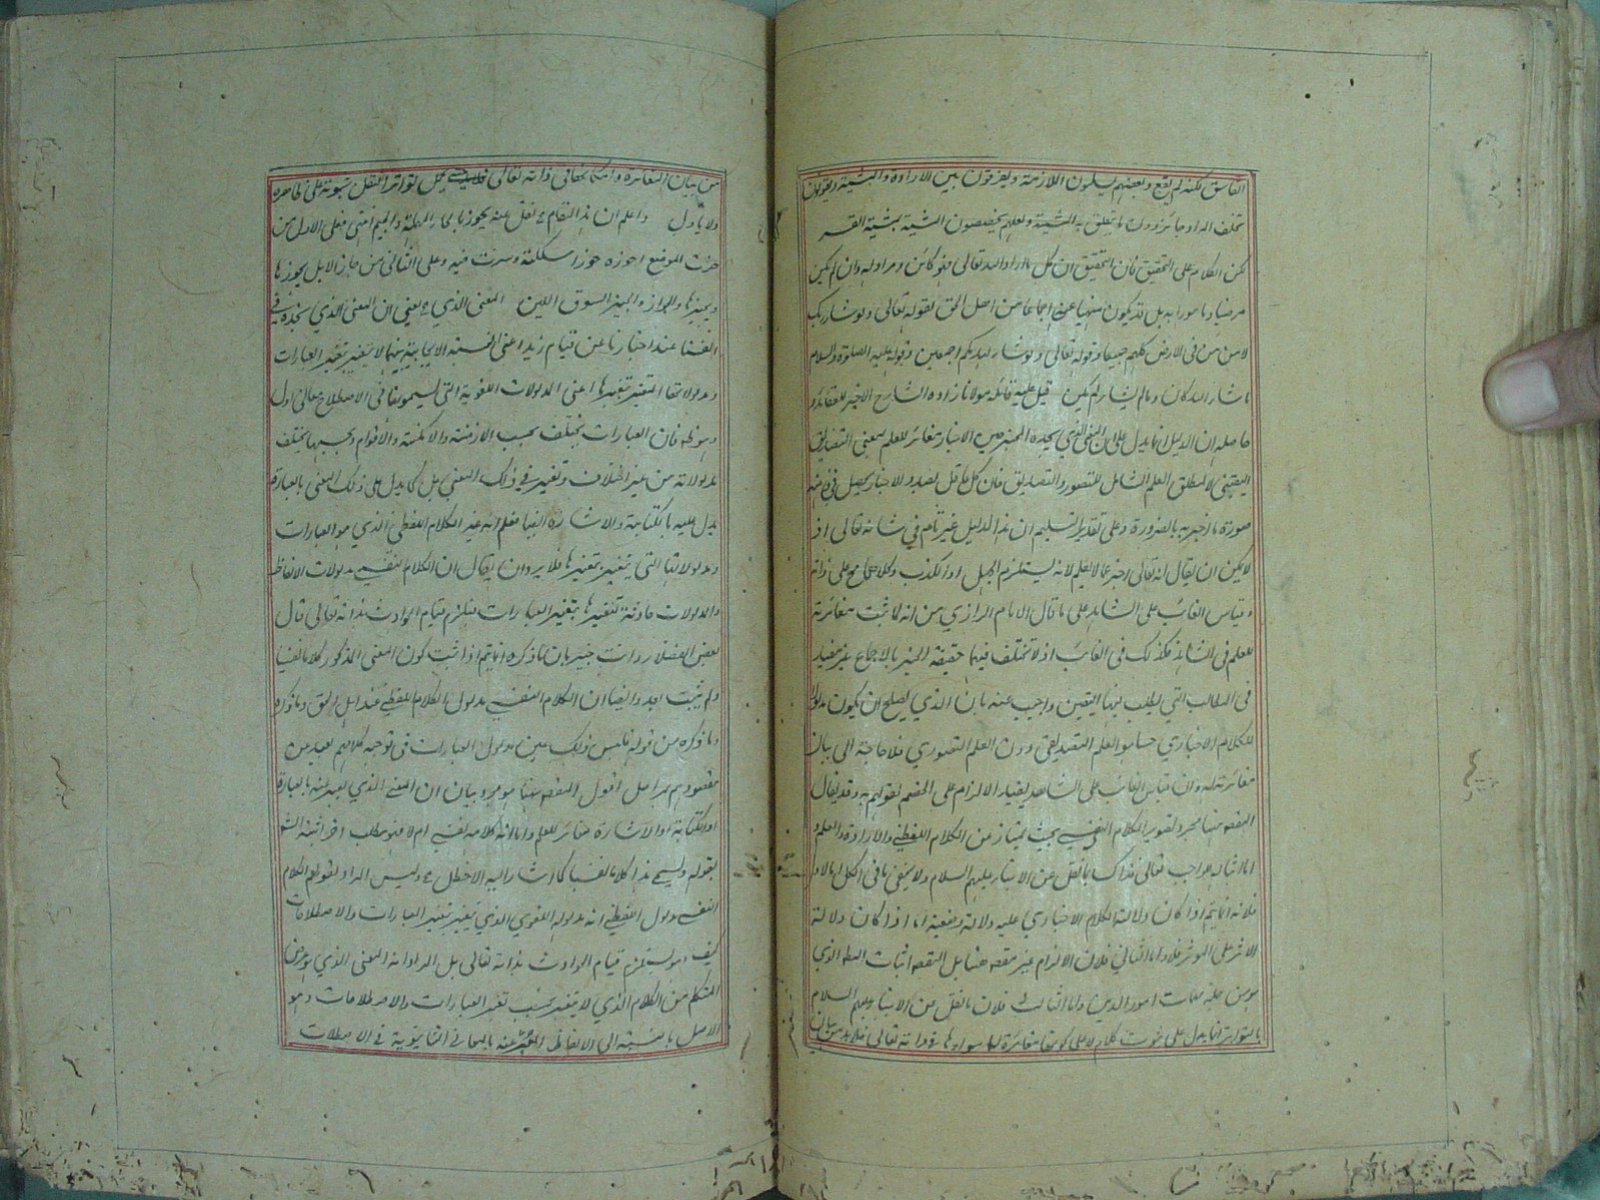 الفاسق لكنه لم يقع وبعضهم يسلمون اللازمة ويفرقون بين الارادة والمشيئة ويقولون
تخلف المراد جائز دون ما يتعلق به المشيئة ولعلهم يخصصون المشيئة بمشية القسر
لكن الكلام على التحقيق فان التحقيق ان كل ما اراد الله تعالى فهو كائن ومراد له وان لم يكن
مرضيا ومامورا به بل قد يكون منهيا عنه اجماعا من اهل الحق لقوله تعالى ولو شاء ربك
لامن من فى الارض كلهم جميعا وقوله تعالى ولو شاء لهديكم اجمعين وقوله عليه الصلوة والسلام
ما شاء الله كان وما لم يشاء لم يكن قيل عليه قائله مولانا زاده الشارح الاخير للعقائد و
حاصله ان الدليل انما يدل على ان المعنى الذي يجده المخبر من الاخبار مغائر للعلم بمعنى التصديق
اليقيني لا لمطلق العلم الشامل للتصور والتصديق فان كل عاقل تصدر للاخبار يحصل فى ذهنه
صورة ما اخبر به بالضرورة وعلى تقدير التسليم ان هذا الدليل غير تام في شانه تعالى اذ
لا يمكن ان يقال انه تعالى اخبر عما لا يعلم لانه يستلزم الجهل او الكذب وكلاهما مح على ذاته
وقياس الغائب على الشاهد على ما قال الامام الرازي من انه لما ثبت مغائرته
للعلم فى الشاهد فكذلك فى الغائب اذ لا تختلف فيهما حقيقة الخبر بالاجماع غير مفيد
فى المطالب التي يطلب فيها اليقين واجيب عنه بان الذي يصلح ان يكون مدلولا
للكلام الاخباري حسا هو العلم التصديقي دون العلم التصوري فلا حاجة الى بيان
مغائرته له وان قياس الغائب على الشاهد يفيد الالزام على الخصم لقولهم به وقد يقال
المقصد هنا مجرد تصوير الكلام النفسي بحيث يمتاز من الكلام اللفظي والارادة والعلم و
اما اثباته للواجب تعالى فذاك بالنقل عن الانبياء عليهم السلام ولا يخفى ما فى الكل اما الاول
فلانه انما يتم اذا كان دلالة الكلام الاخباري عليه دلالة وضعية اما اذا كان دلالة
الاثر على المؤثر فلا واما الثاني فلان الالزام غير مقصد هنا بل المقصد اثبات المطلب الذي
هو من جملة مهمات امور الدين واما الثالث فلان ما نقل عن الانبياء عليهم السلام
بالتواتر انما يدل على ثبوت كلام لا على كونها مغائرة لما سواها فى ذاته تعالى فلا بد من بيان
من بيان المغائرة وامكانها فى ذاته تعالى حتى يحمل تواتر النقل ثبوته على ظاهره
ولا ياول واعلم ان هذا المقام نقل عنه يجوز بالحاء المهملة والجيم فعلى الاول من
حزت الموضع احوزه حوزا سلكته وسرت فيه وعلى الثاني من جاز الابل يجوزها
ويجيزها والجواز والجيز السوق اللين المعنى الذي يعني ان المعنى الذي نجده في
انفسنا عند اخبارنا عن قيام زيد اعنى النسبة الايجابية بينهما لا يتغير بتغير العبارات
ومدلولاتها المتغير بتغيرها اعنى المدلولات اللغوية التى يسمونها فى الاصطلاح معانى اول
وهو ظه فان العبارات تختلف بحسب الازمنة والامكنة والاقوام وبحسبها يختلف
مدلولاته من غير اختلاف وتغير في ذلك المعنى بل كما يدل على ذلك المعنى بالعبارة
يدل عليه بالكتابة والاشارة ايضا فعلم انه غير الكلام اللفظي الذي هو العبارات
ومدلولاتها التى يتغير بتغيرها فلا يرد ان يقال ان الكلام النفسي مدلولات الالفاظ
والمدلولات حادثة لتغيرها بتغير العبارات فيلزم قيام الحوادث بذاته تعالى قال
بعض الفضلاء وانت خبير بان ما ذكره انما يتم اذا ثبت كون المعنى المذكور كلاما نفسيا
ولم يثبت بعد وايضا ان الكلام النفسي مدلول الكلام اللفظي عند اهل الحق وما ذكره
وما ذكره من قوله فليس ذلك عين مدلول العبارات فى توجيه كلامهم بعيد من
مقصودهم بمراحل اقول المقصد ههنا هو مجرد بيان ان المعنى الذي يعبر عنه بالعبارة
او الكتابة او الاشارة مغائر للعلم واما انه كلام نفسي ام لا فهو مطلب اخر اثبته الش
بقوله ويسمى هذا كلاما نفسيا كما اشار اليه الاخطل وليس المراد بقولهم الكلام
النفسي مدلول اللفظي انه مدلوله اللغوي الذي يتغير بتغير العبارات والاصطلاحات
كيف وهو يستلزم قيام الحوادث بذاته تعالى بل المراد انه المعنى الذي هو غرض
المتكلم من الكلام الذي لا يتغير بحسب تغير العبارات والاصطلاحات وهو
الاصل بالنسبة الى الالفاظ المعبر عنه بالمعاني الثانوية في الاصطلاحات